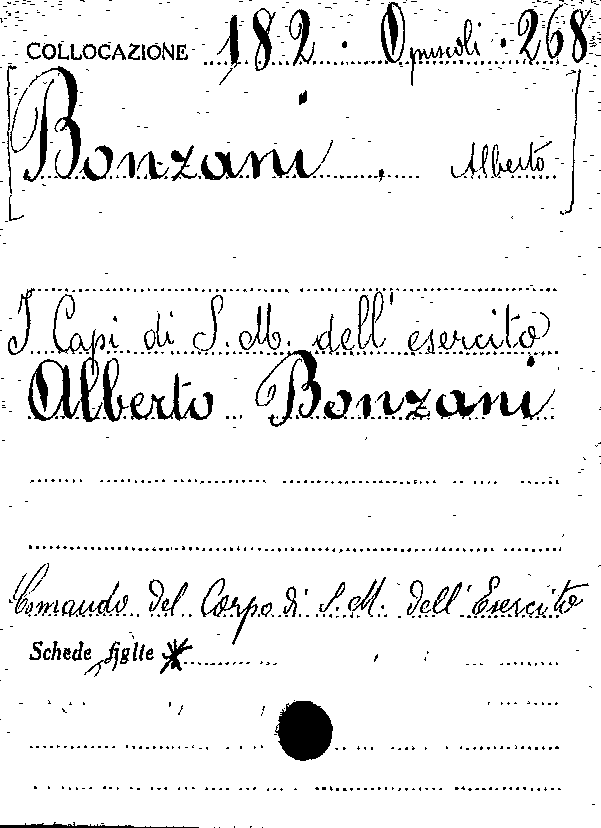 COLLOCAZIONE 182. Opuscoli. 268
[Bonzani, Alberto]
I Capi di S.M. dell'esercito
Alberto Bonzani
Comando del Corpo di S.M. dell'Esercito
Schede figlie